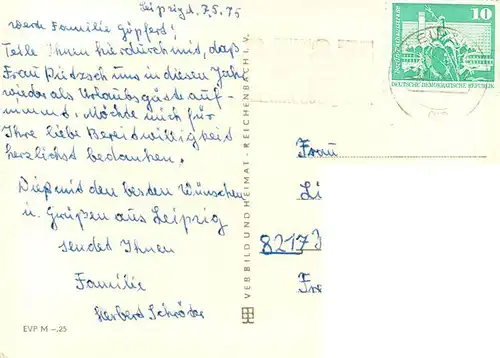 Leipzig d. 7.5.75
Werte Familie Göpfert!
Teile Ihnen hierdurch mit, daß
Frau uns in diesen Jahr
wieder als Urlaubsgäste auf-
nimmt. Möchte mich für
Ihre liebe Bereitwilligkeit
herzlichst bedanken.
Dies mit den besten Wünschen
u. Grüßen aus Leipzig
sendet Ihnen
Familie
Herbert Schröder
EVP M –,25
VEB BILD UND HEIMAT · REICHENBACH I. V.
10
DEUTSCHE DEMOKRATISCHE REPUBLIK
Frau
Li
8217
Fre